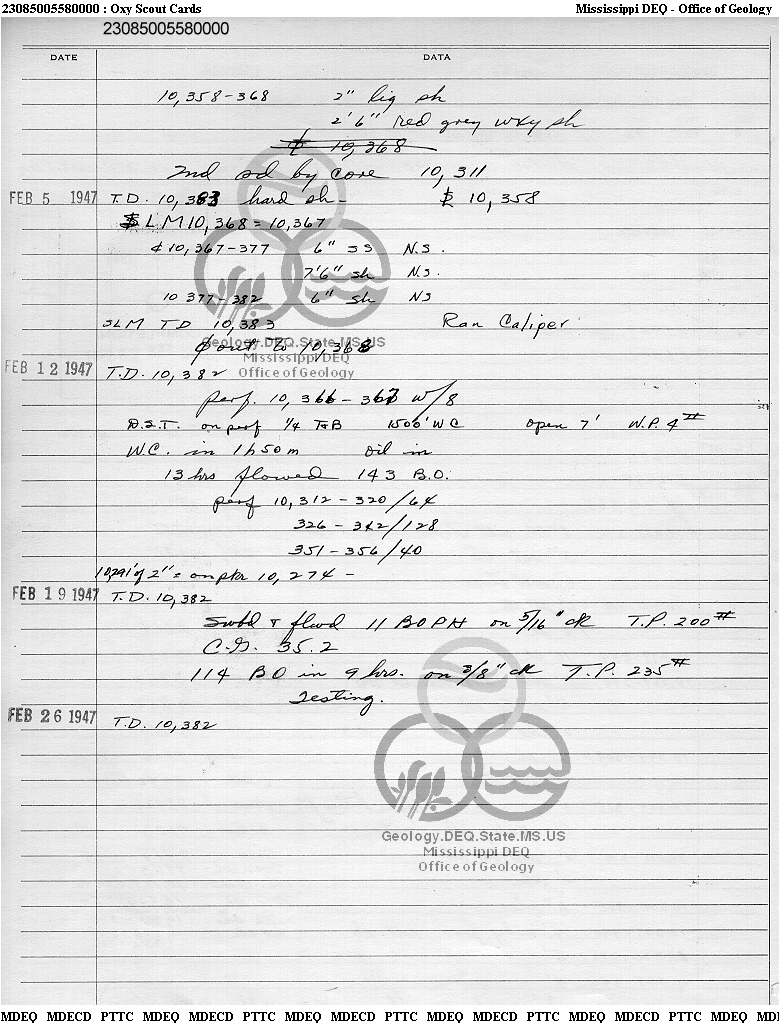 23085005580000 : Oxy Scout Cards Mississippi DEQ - Office of Geology
23085005580000
DATE DATA
10,358-368 2" lig sh
2'6" red grey wxy sh
¢ 10,368
2nd sd by core 10,311
FEB 5 1947 T.D. 10,383 hard sh - 10,358
SLM 10,368 = 10,367
¢ 10,367-377 6" SS N.S.
7'6" sh N.S.
10 377-382 6" sh NS
SLM TD 10,383 Ran Caliper
Geology.DEQ.State.MS.US
out to 10,368
Mississippi DEQ
FEB 12 1947 T.D. 10,382
Office of Geology
perf. 10,366-367 w/8
D.S.T. on perf 1/4 T&B 1500' WC open 7' W.P. 4#
W.C. in 1h50m Oil in
13 hrs flowed 143 B.O.
perf 10,312-320/64
326-342/128
351-356/40
10,291' of 2" = on pkr 10,274 -
FEB 19 1947 T.D. 10,382
Swbd & flwd 11 BOPH on 5/16" ck T.P. 200#
C.G. 35.2
114 BO in 9 hrs. on 3/8" ck T.P. 235#
Testing.
FEB 26 1947 T.D. 10,382
Geology.DEQ.State.MS.US
Mississippi DEQ
Office of Geology
MDEQ MDECD PTTC MDEQ MDECD PTTC MDEQ MDECD PTTC MDEQ MDECD PTTC MDEQ MD